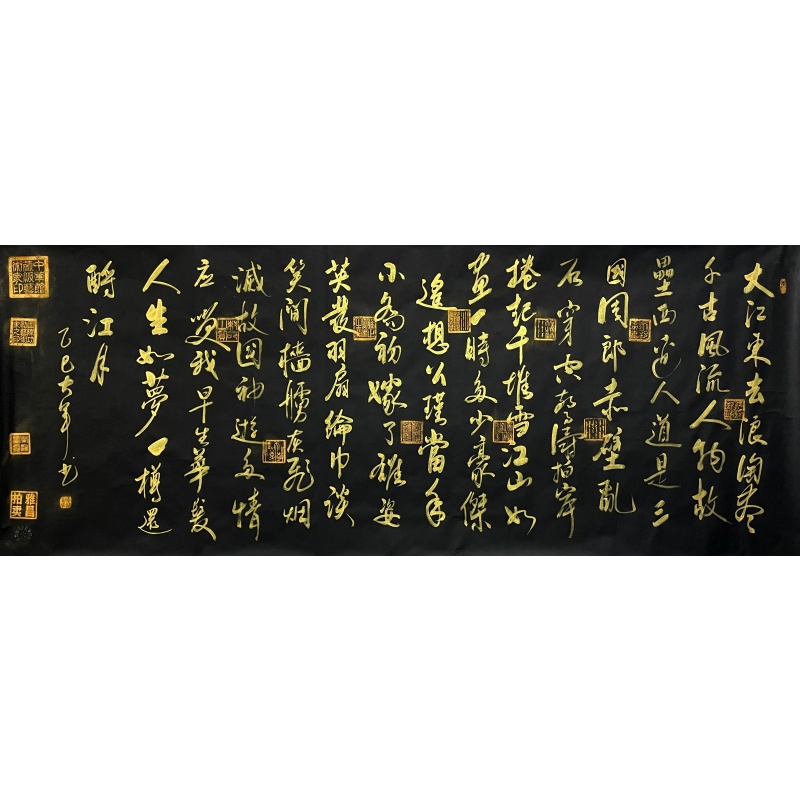 大江東去浪淘盡
千古風流人物故
壘西邊人道是三
國周郎赤壁亂
石穿空驚濤拍岸
捲起千堆雪江山如
畫一時多少豪傑
遙想公瑾當年
小喬初嫁了雄姿
英發羽扇綸巾談
笑間檣艣灰飛烟
滅故國神遊多情
应笑我早生華髮
人生如夢一樽還
酹江月
乙巳大年书
雅昌
拍卖